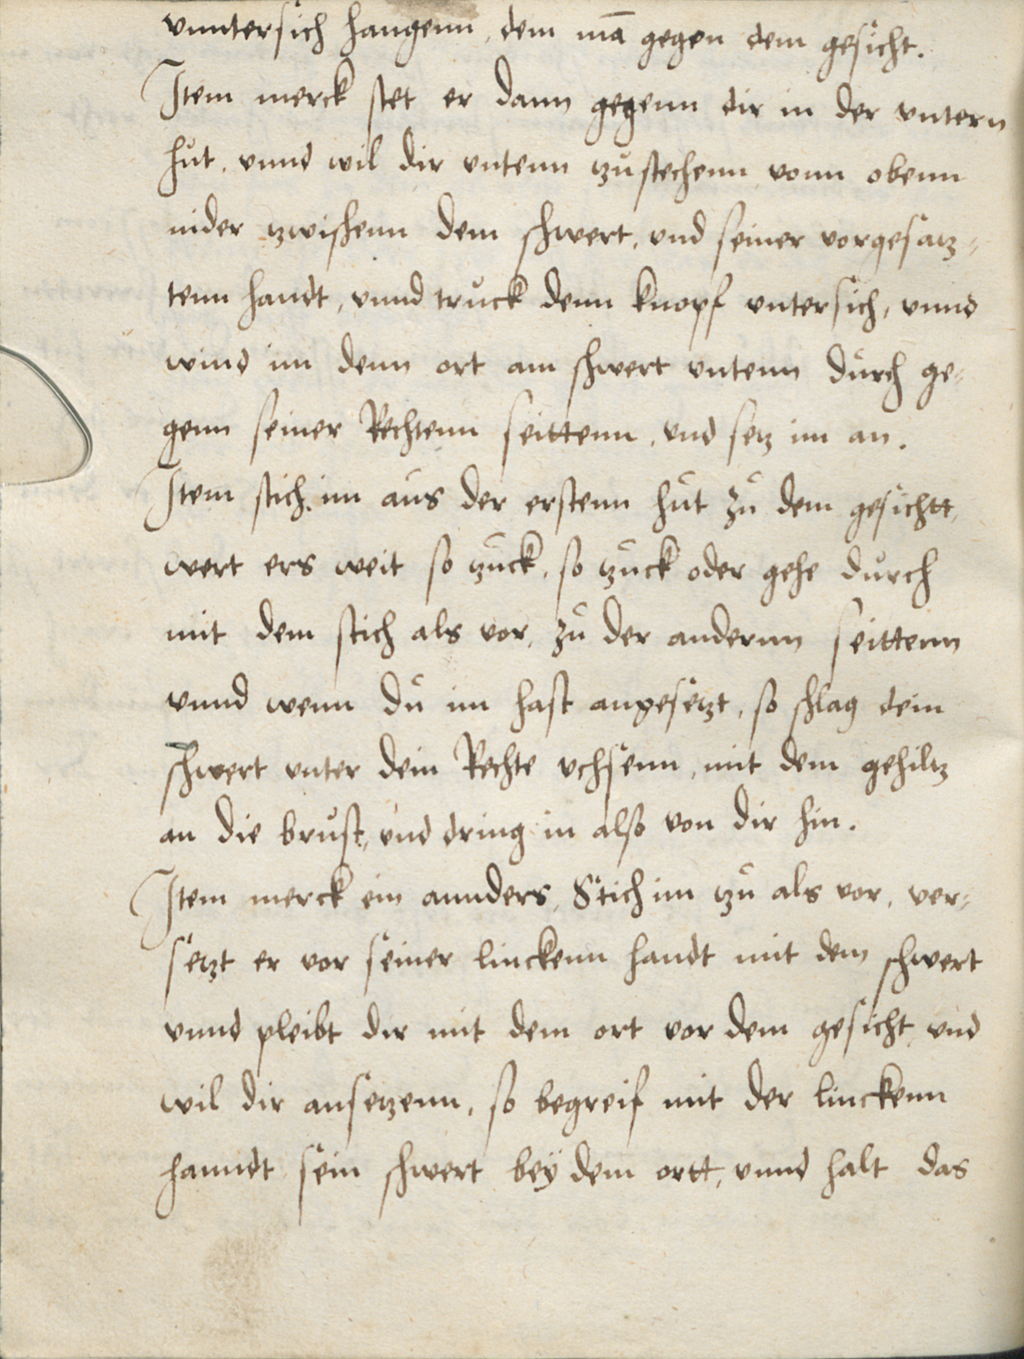 vnntersich hangenn, dem mā gegen dem gesicht.
Item merck stet er dann gegenn dir in der vntern
hůt, vnnd wil dir vntenn tzů stechenn vonn obenn
nider tzwischenn dem schwert, vnd seiner vorgesatz-
tenn handt, vnnd truck denn knopf vntersich, vnnd
wind im denn ort am schwert vntenn důrch ge-
genn seiner Rechtenn seittenn, vnd setz im an.
Item stich im aůs der erstenn hůt zů dem gesichtt,
wert ers weit so tzůck, so tzůck oder gehe důrch
mit dem stich als vor, zů der andernn seittenn
vnnd wenn dů im hast angesetzt, so schlag dein
schwert vnter dein Rechte vchsenn, mit dem gehiltz
an die brůst, vnd dring in also von dir hin.
Item merck ein annders, Stich im tzů als vor, ver-
setzt er vor seiner linckenn handt mit dem schwert
vnnd pleibt dir mit dem ort vor dem gesicht vnd
wil dir ansetzenn, so begreif mit der linckenn
hanndt sein schwert beÿ dem ortt, vnnd halt das